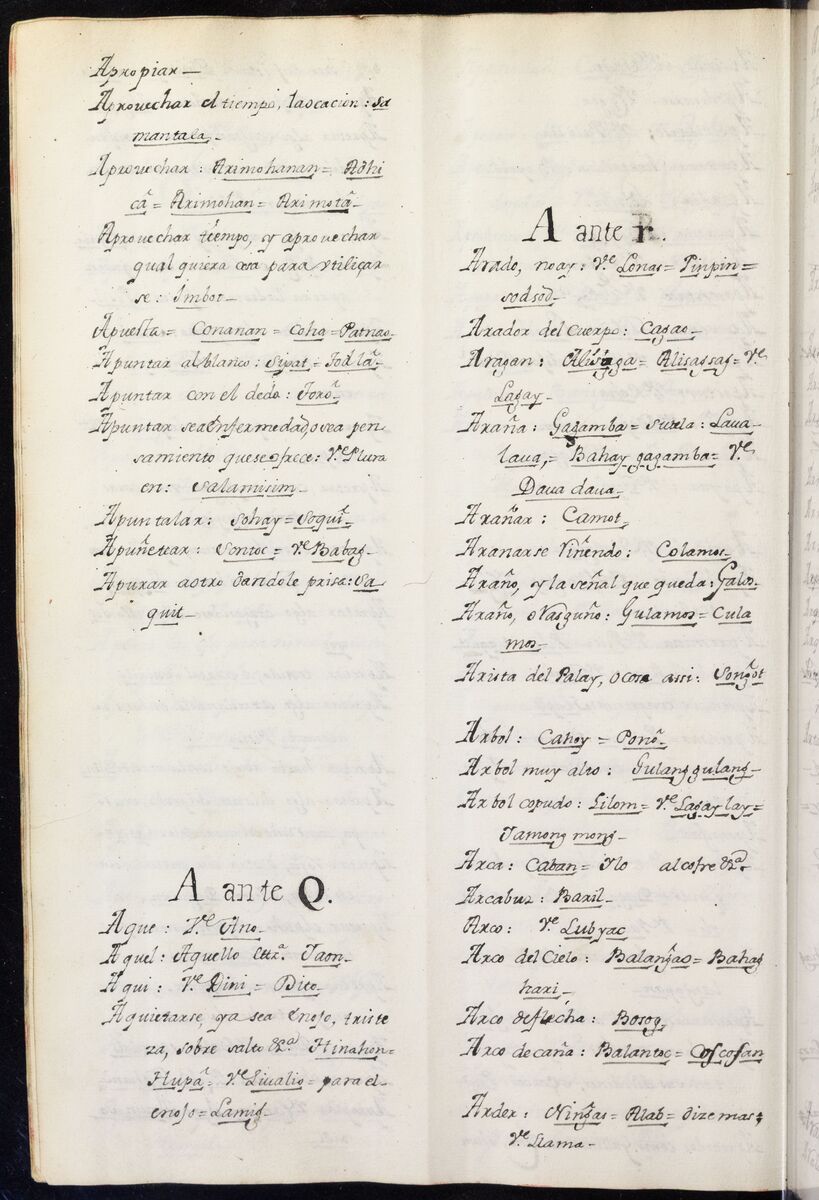 Apropiar_
Aprouechar el tiempo, laocacion: sa
mantala_
Aprouechar: Arimohanan= Adhi
ca᷃= Arimohan= Arimota᷃_
Aprouechar tiempo, y aprouechar
qual quiera cosa para vtiliçar
se: Imbot_
Apuesta= Conanan= Coha= Patnao_
Apuntar al blanco: Sipat= Todla᷃_
Apuntar con el dedo: Toro᷃_
Apuntar sea Enfermedad, o sea pen
samiento que se ofrece: Vᵉ Plura
en: Salamisim_
Apuntalar: Sohay= Soqui᷃_
Apuñetear: Sontoc= Vᵉ Babag_
Apurar aotro dandole prisa: Sa
quit_
A ante Q.
Aque: Vᵉ Ano_
Aquel: Aquello Ettᵃ. Taon_
Aqui: Vᵉ Dini= Dito_
Aquietarse, ya sea Enojo, triste
za, sobre salto &ᵃ. Hinahon=
Hupa᷃_ Vᵉ Liualio= para el
enojo= Lamig_
A ante R.
Arado, no ay: Vᵉ Lonas= Pinpin=
sodsod_
Arador del Cuerpo: Cagao_
Aragan: Alisaga= Alisagsag= Vᵉ
Lagay_
Araña: Gagamba= sutela: Laua_
laua,= Bahay gagamba= Vᵉ
Daua daua_
Arañar: Camot_
Aranarse Riñendo: Colamos_
Araño, y la señal que queda: Galos_
Araño, o Rasguño: Gulamos= Cula
mos_
Arista del Palay, o cosa assi: Song᷃ot
Arbol: Cahoy= Pono᷃_
Arbol muy alto: Gulanggulang_
Arbol copudo: Lilom= Vᵉ Lagaylay=
Tamong mong_
Arca: Caban= Ylo alcofre &ᵃ.
Arcabuz: Baril_
Arco: Vᵉ Lubyac
Arco del Cielo: Balang᷃ao= Bahag
hari_
Arco de flecha: Bosog,
Arco de caña: Balantoc= Coscosan
Arder: Ning᷃as= Alab= dize mas;
Vᵉ Llama_